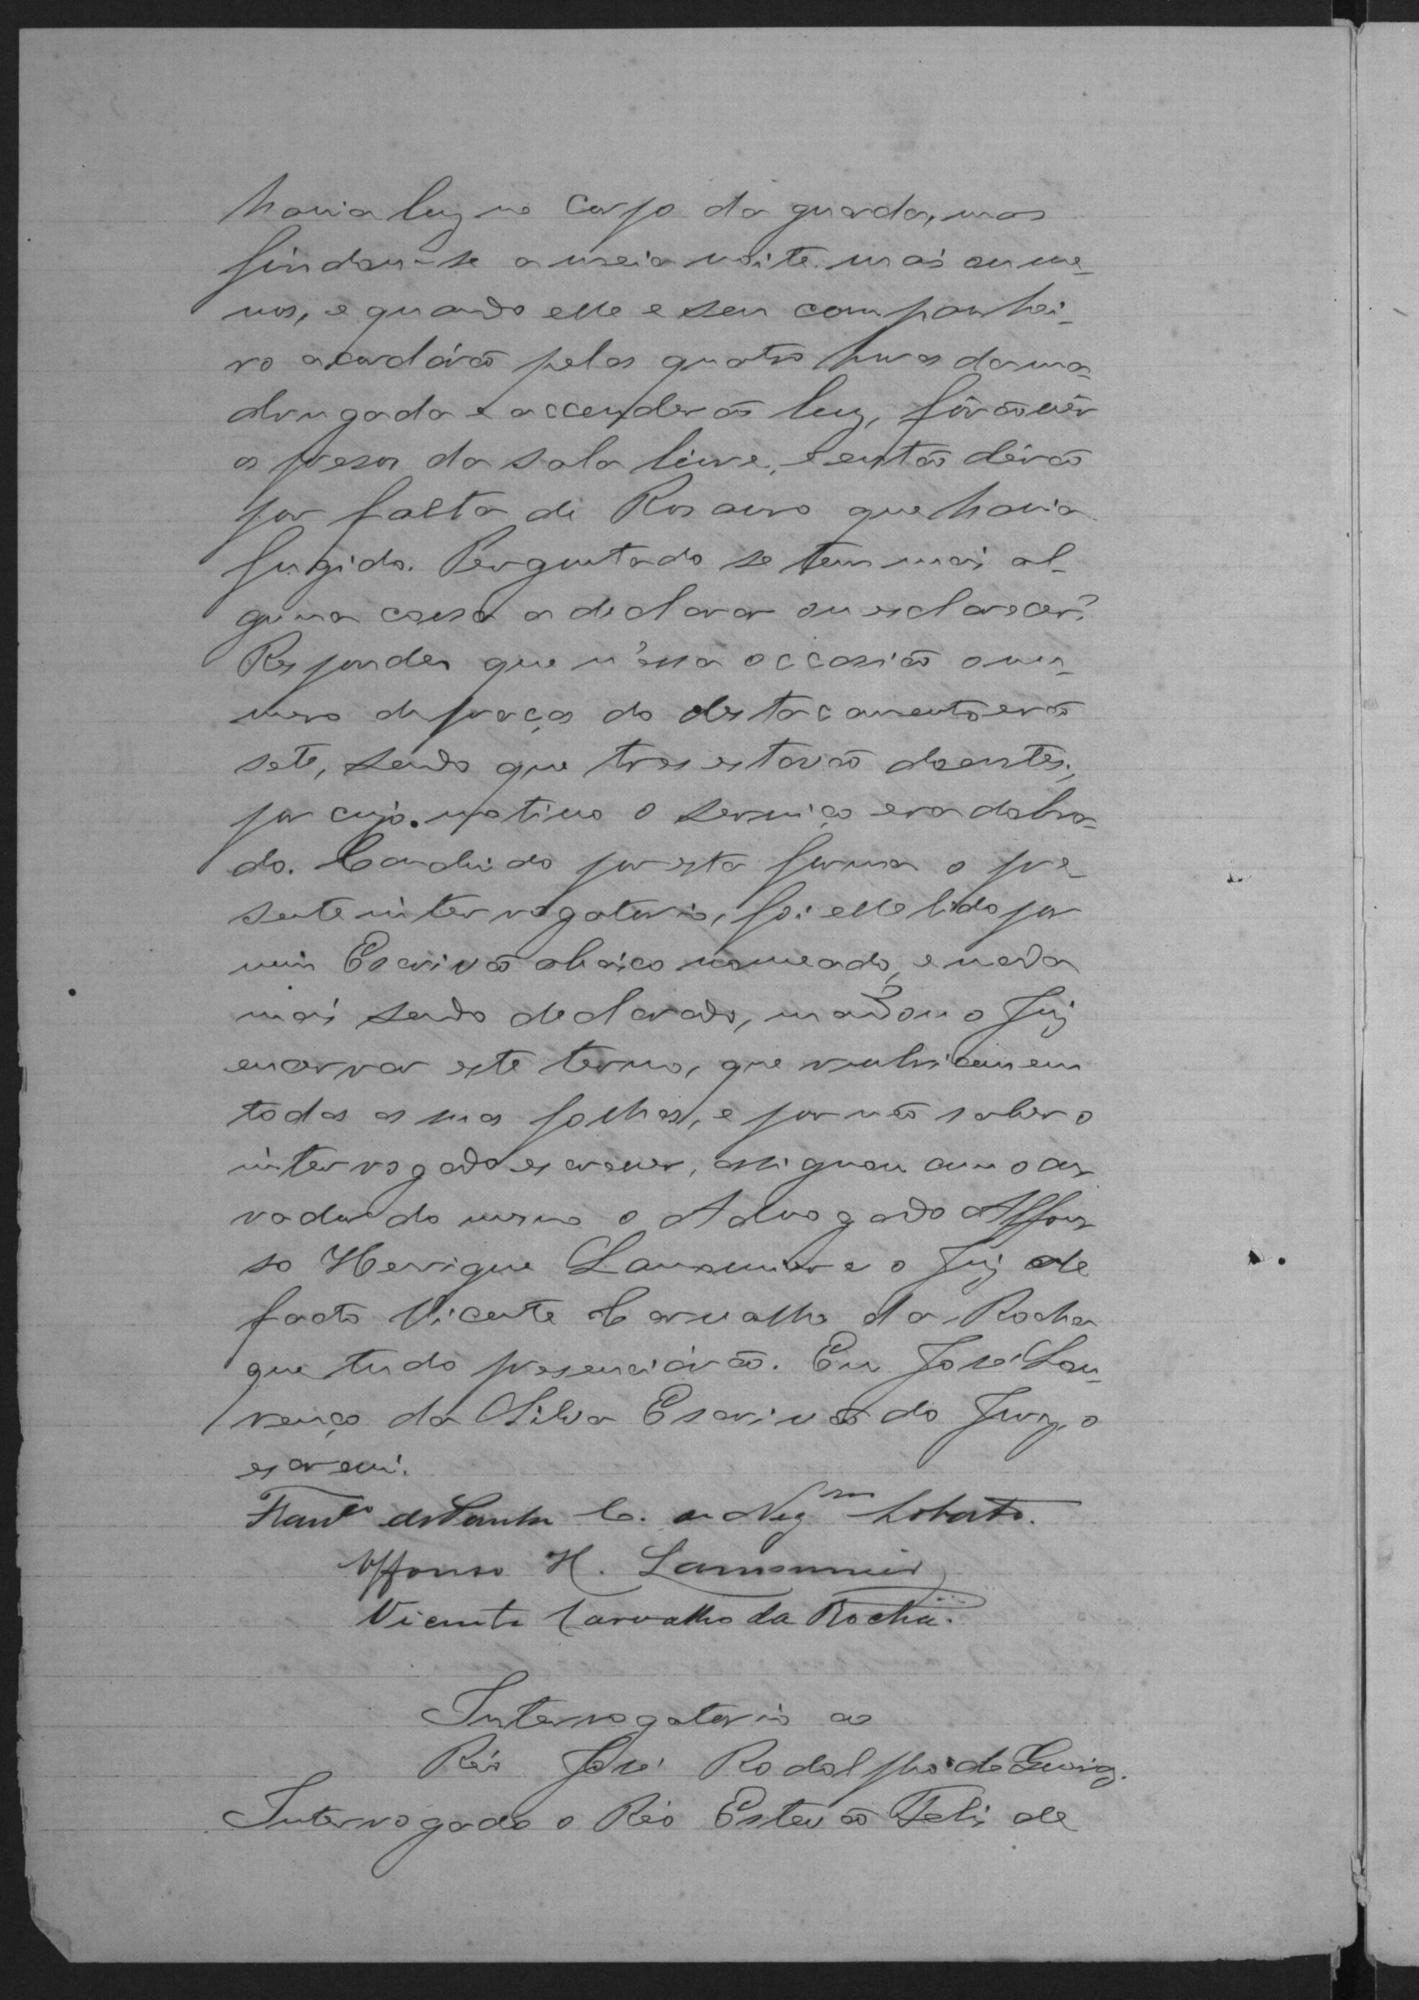 havia luz no corpo da guarda, mas
findou-se a meia noite mais ou me-
nos, e quando elle e seu companhei-
ro acordárão pelas quatro horas da ma-
drugada e accenderão luz, fôrão vêr
os presos da sala livre, e então dérão
por falta de Rosauro que havia
fugido. Perguntado se tem mais al-
guma cousa a declarar ou esclarecer?
Respondeu que n'essa occasião o nu-
mero de praças do destacamento erão
sete, sendo que tres estavão doentes,
por cujo motivo o serviço era dobra-
do. Concluido por esta forma o pre-
sente interrogatorio, foi elle lido por
mim Escrivão abaixo nomeado, e nada
mais sendo declarado, mandou o Juiz
encerrar este termo, que rubricou em
todas as suas folhas, e por não saber o
interrogado escrever, assignou com o cu-
rador do mesmo o Advogado Affon-
so Henrique Lamounier e o Juiz de
facto Vicente Carvalho da Rocha
que tudo presenciárão. Eu José Lou-
renço da Silva Escrivão do Jury, o
escrevi.
Franco de Paula C. de Negros Lobato.
Affonso H. Lamounier
Vicente Carvalho da Rocha.
Interrogatorio ao
Réo José Rodolpho de
Interrogado o Réo Estevão Felis de